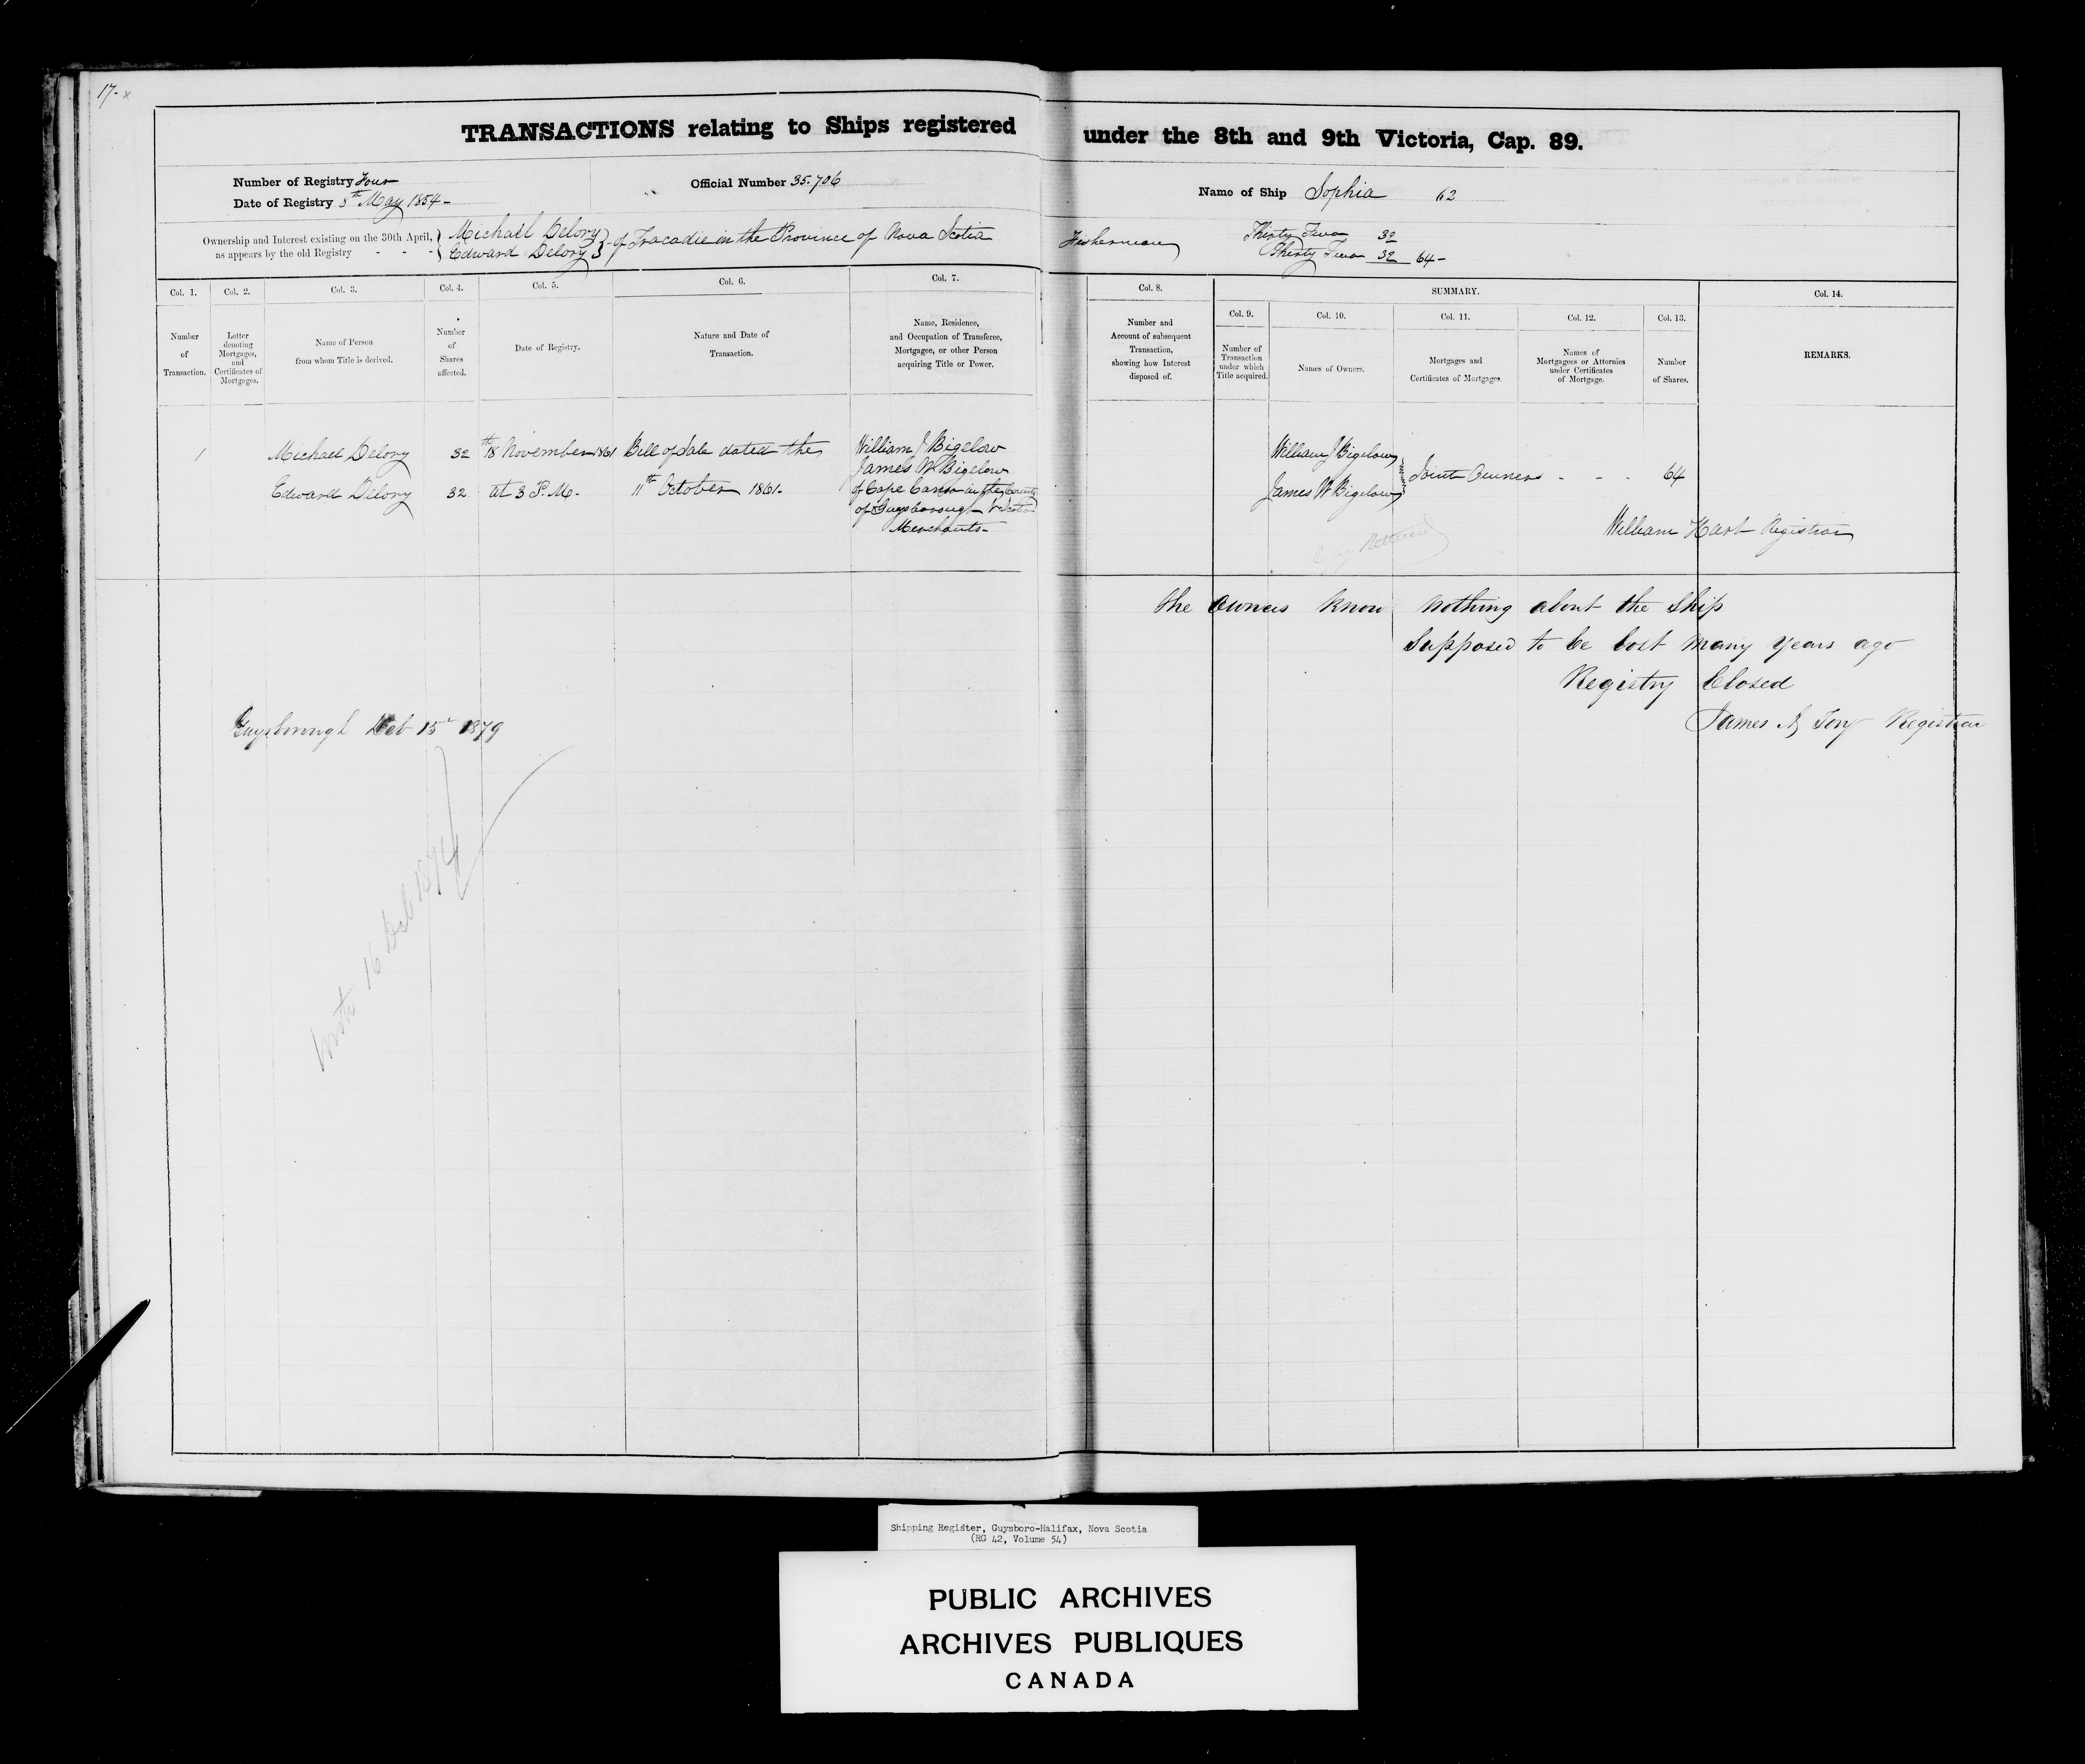 17- x
TRANSACTIONS relating to Ships registered under the 8th and 9th Victoria, Cap. 89.
Number of Registry Four
Date of Registry 8th May 1854-
Official Number 35.706
Name of Ship Sophia 62
Ownership and Interest existing on the 30th April, as appears by the old Registry - - -
Michael Delory
Edward Delory
of Tracadie in the Province of Nova Scotia Fisherman
Thirty Two 32
Thirty Two 32 64-
Col. 1.
Number of Transaction.
Col. 2.
Letter denoting Mortgages, and Certificates of Mortgages.
Col. 3.
Name of Person from whom Title is derived.
Col. 4.
Number of Shares affected.
Col. 5.
Date of Registry.
Col. 6.
Nature and Date of Transaction.
Col. 7.
Name, Residence, and Occupation of Transferee, Mortgagee, or other Person acquiring Title or Power.
Col. 8.
Number and Account of subsequent Transaction, showing how Interest disposed of.
SUMMARY.
Col. 9.
Number of Transaction under which Title acquired.
Col. 10.
Names of Owners.
Col. 11.
Mortgages and Certificates of Mortgages.
Col. 12.
Names of Mortgagees or Attornies under Certificates of Mortgage.
Col. 13.
Number of Shares.
Col. 14.
REMARKS.
1
Michael Delory 32
Edward Delory 32
18th November 1861
at 3 P.M.
Bill of Sale dated the
11th October 1861.
William J Bigelow
James W Bigelow
of Cape Canso in the County
of Guysborough N Scotia
Merchants-
William J Bigelow
James W Bigelow
Joint Owners - - - 64
William Hart Registrar
the owners know nothing about the Ship
Supposed to be lost many years ago
Registry Closed
James A Tory Registrar
Guysborough Feb 15 1879
16
Shipping Register, Guysboro-Halifax, Nova Scotia
(RG 42, Volume 54)
PUBLIC ARCHIVES
ARCHIVES PUBLIQUES
CANADA